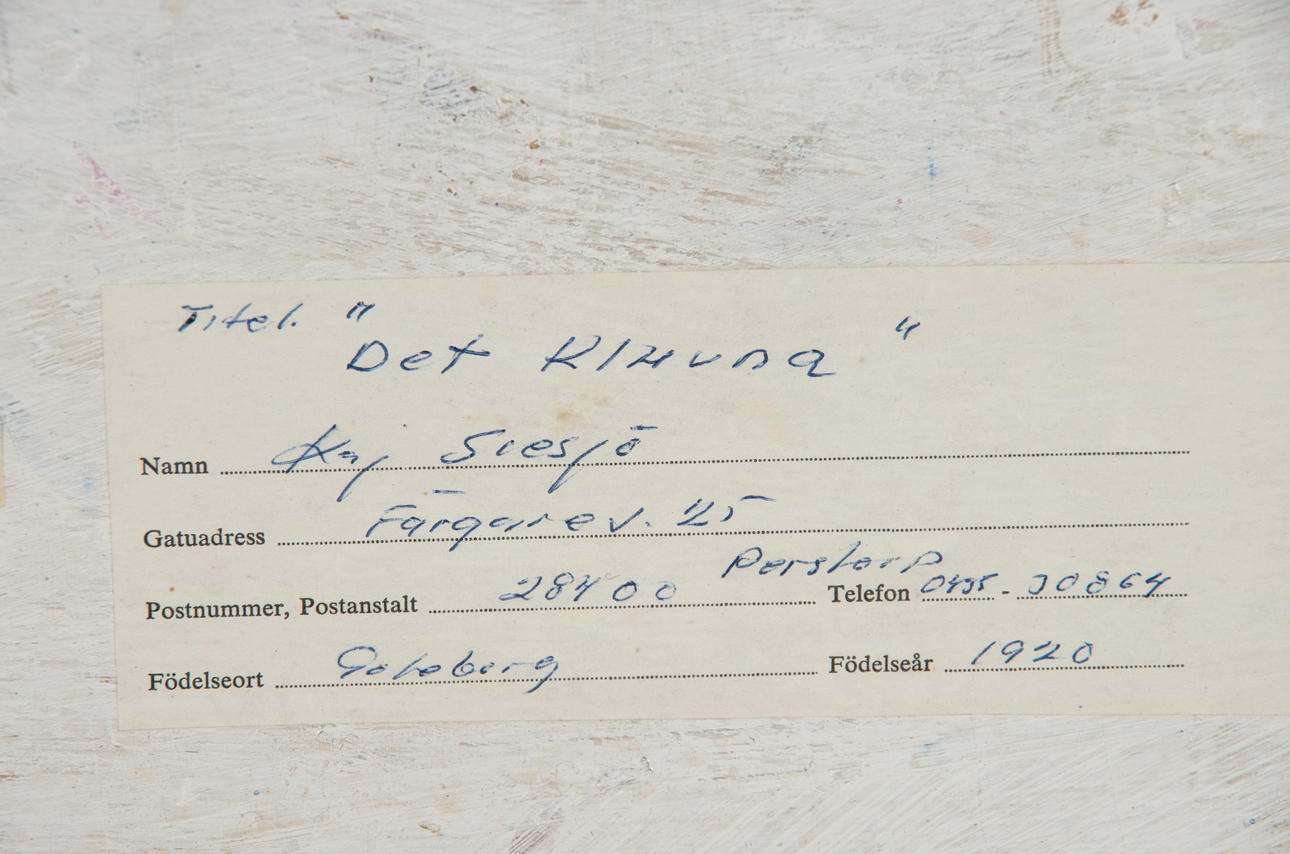 Titel. "
Det Kluvna "
Namn Kaj Siesjö
Gatuadress Färgarev. 25
Perstorp
Postnummer, Postanstalt 28400 Telefon 0435 - 30864
Födelseort Göteborg Födelseår 1920